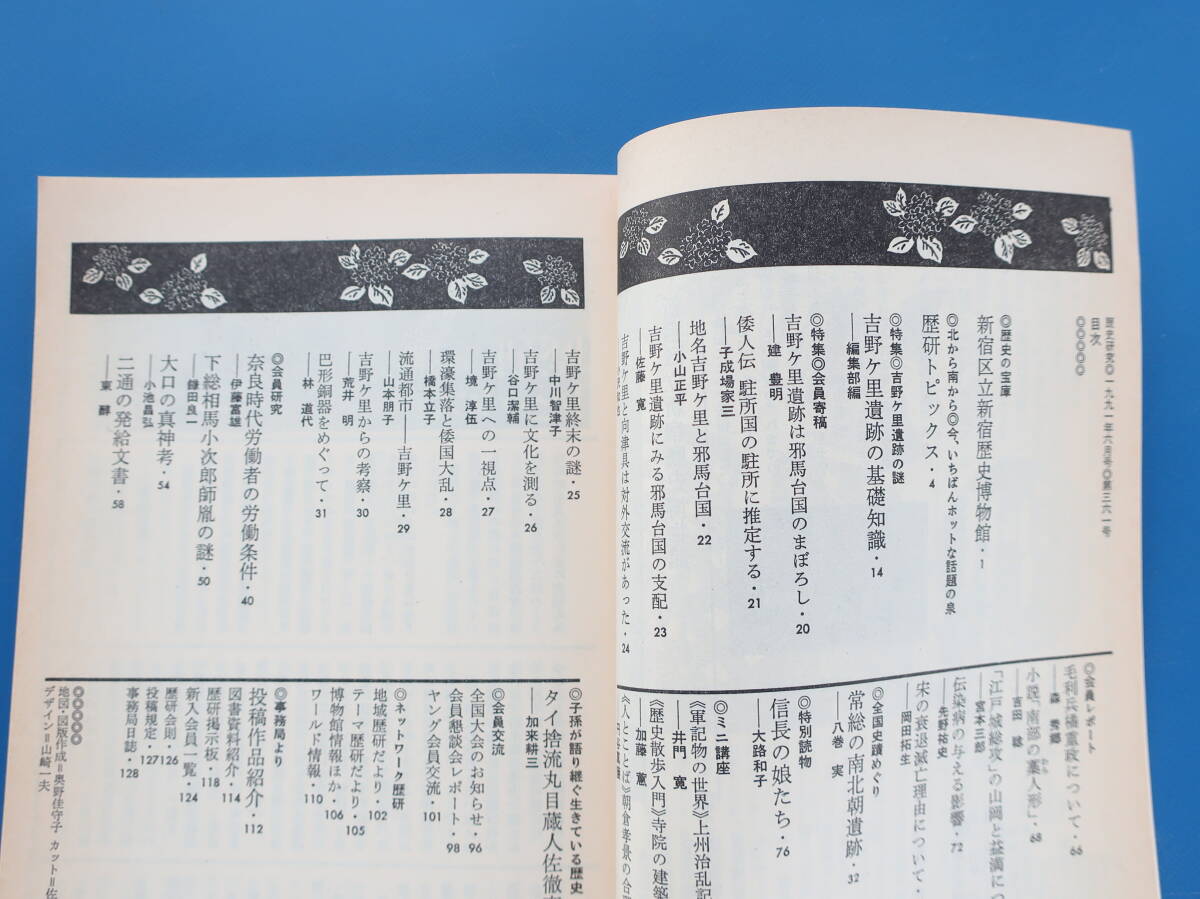 歴史研究◎一九九一年六月号◎第三六一号
目次
◎◎◎◎◎
◎歴史の宝庫
新宿区立新宿歴史博物館・1
◎北から南から◎今、いちばんホットな話題の泉
歴研トピックス・4
◎特集◎吉野ケ里遺跡の謎
吉野ケ里遺跡の基礎知識・14
―編集部編
◎特集◎会員寄稿
吉野ケ里遺跡は邪馬台国のまぼろし・20
―建 豊明
倭人伝 駐所国の駐所に推定する・21
―子成場家三
地名吉野ケ里と邪馬台国・22
―小山正平
吉野ケ里遺跡にみる邪馬台国の支配・23
―佐藤 寛
吉野ケ里と向津具は対外交流があった・24
◎会員レポート
毛利兵橘重政について・66
―森 秀郷
小説「南部の藁人形」・68
から
―吉田 聡
「江戸城総攻」の山岡と益満につ
―宮本三郎
伝染病の与える影響・72
―矢野祐史
宋の衰退滅亡理由について・
―岡田拓生
◎全国史蹟めぐり
常総の南北朝遺跡・32
―八巻 実
◎特別読物
信長の娘たち・76
―大路和子
◎ミニ講座
《軍記物の世界》上州治乱記
―井門 寛
《歴史散歩入門》寺院の建築
―加藤 薫
《人とことば》朝倉孝景の合
吉野ケ里終末の謎・25
―中川智津子
吉野ケ里に文化を測る・26
―谷口潔輔
吉野ケ里への一視点・27
―境 淳伍
環濠集落と倭国大乱・28
―橋本立子
流通都市――吉野ケ里・29
―山本朋子
吉野ケ里からの考察・30
―荒井 明
巴形銅器をめぐって・31
―林 道代
◎会員研究
奈良時代労働者の労働条件・40
―伊藤富雄
下総相馬小次郎師胤の謎・50
―鎌田良一
大口の真神考・54
―小池昌弘
二通の発給文書・58
―東 酔
◎子孫が語り継ぐ生きている歴史
タイ捨流丸目蔵人佐徹
―加来耕三
◎会員交流
全国大会のお知らせ・96
会員懇談会レポート・98
ヤング会員交流・101
◎ネットワーク歴研
地域歴研だより・102
テーマ歴研だより・105
博物館情報ほか・106
ワールド情報・110
◎事務局より
投稿作品紹介・112
図書資料紹介・114
歴研掲示板・118
新入会員一覧・124
歴研会則・126
投稿規定・127
事務局日誌・128
◎◎◎◎◎
地図・図版作成＝奥野佳守子 カット＝佐
デザイン＝山崎一夫